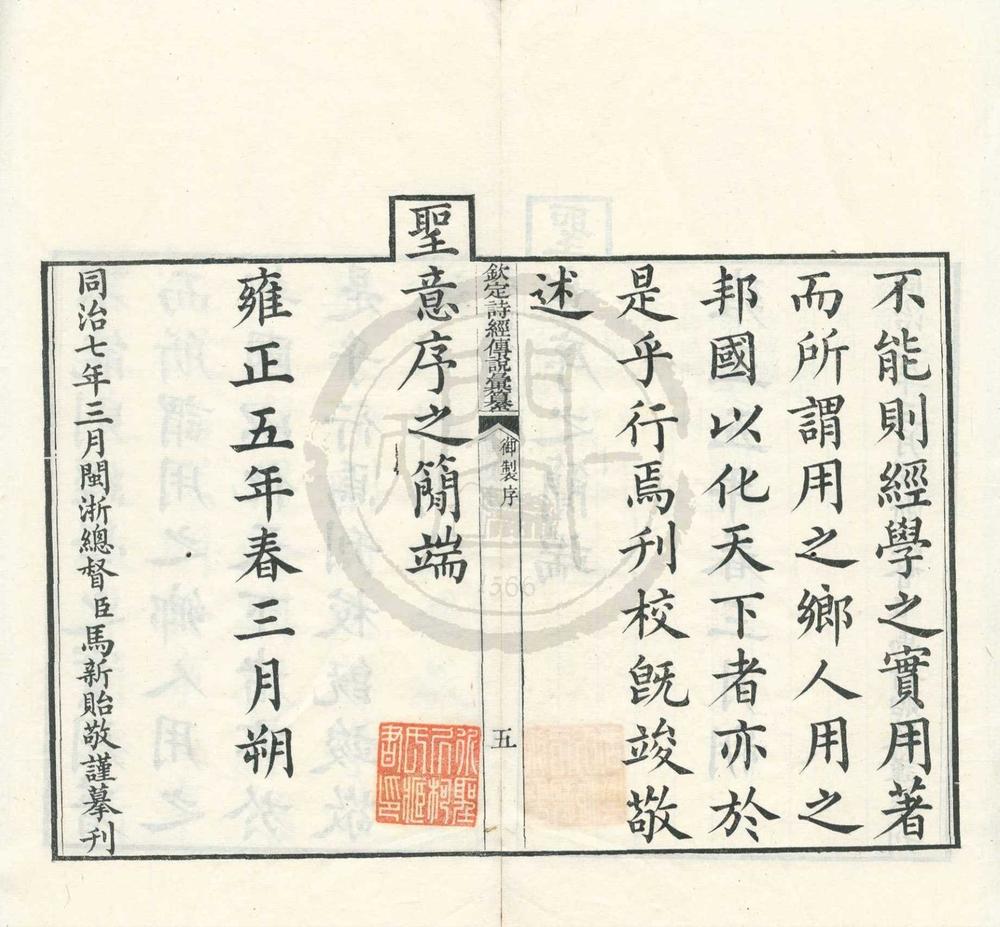 不能則經學之實用著
而所謂用之鄉人用之
邦國以化天下者亦於
是乎行焉刊校旣竣敬
述
欽定詩經傳說彙纂
御製序
五
聖意序之簡端
雍正五年春三月朔
同治七年三月閩浙總督臣馬新貽敬謹摹刊
1566